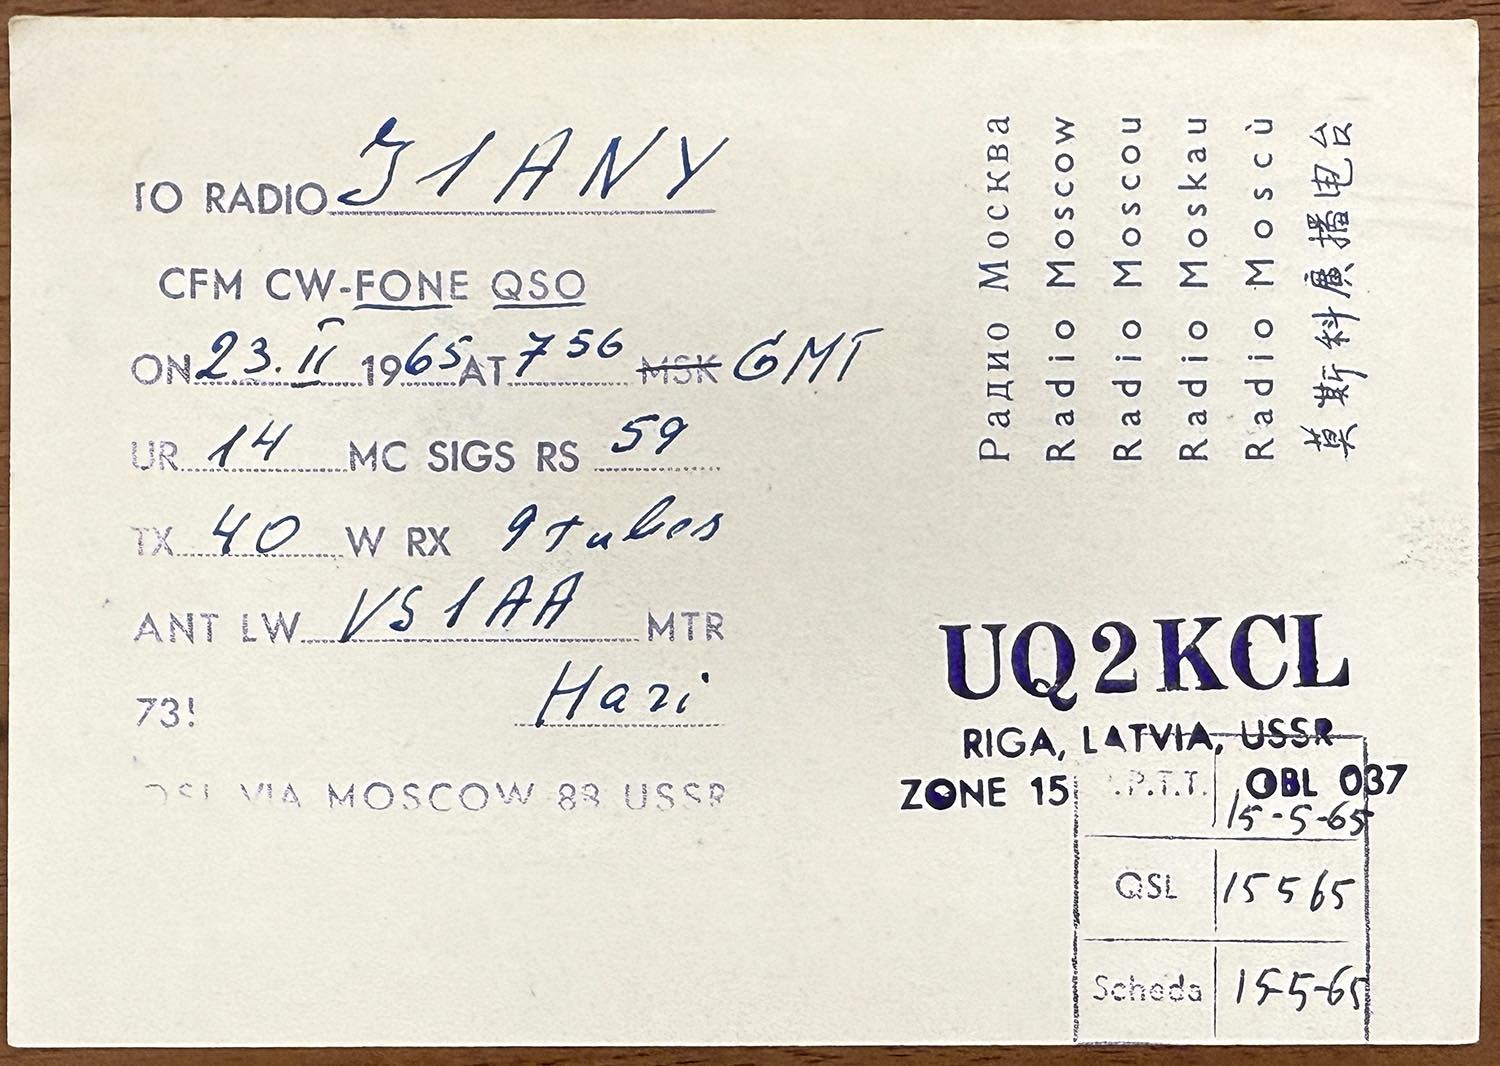 TO RADIO I1ANY
CFM CW-FONE QSO
ON 23.II 1965 AT 7 56 MSK GMT
UR 14 MC SIGS RS 59
TX 40 W RX 9 tubes
ANT LW VS1AA MTR
73! Hari
QSL VIA MOSCOW 88 USSR
Радио Москва
Radio Moscow
Radio Moscou
Radio Moskau
Radio Moscù
莫斯科廣播电台
UQ2KCL
RIGA, LATVIA, USSR
ZONE 15 OBL 037
.P.T.T. 15-5-65
QSL 15 5 65
Scheda 15-5-65